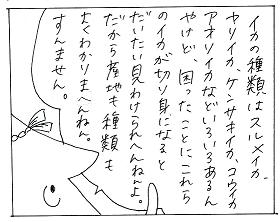 イカの種類はスルメイカ.
ヤリイカ、ケンサキイカ、コウイカ
アオリイカなどいろいろあるん
やけど、困ったことにこれら
のイカが切り身になると
だいたい見わけられへんねよ。
だから産地も種類も
よくわかりまへんねん。
すんません。